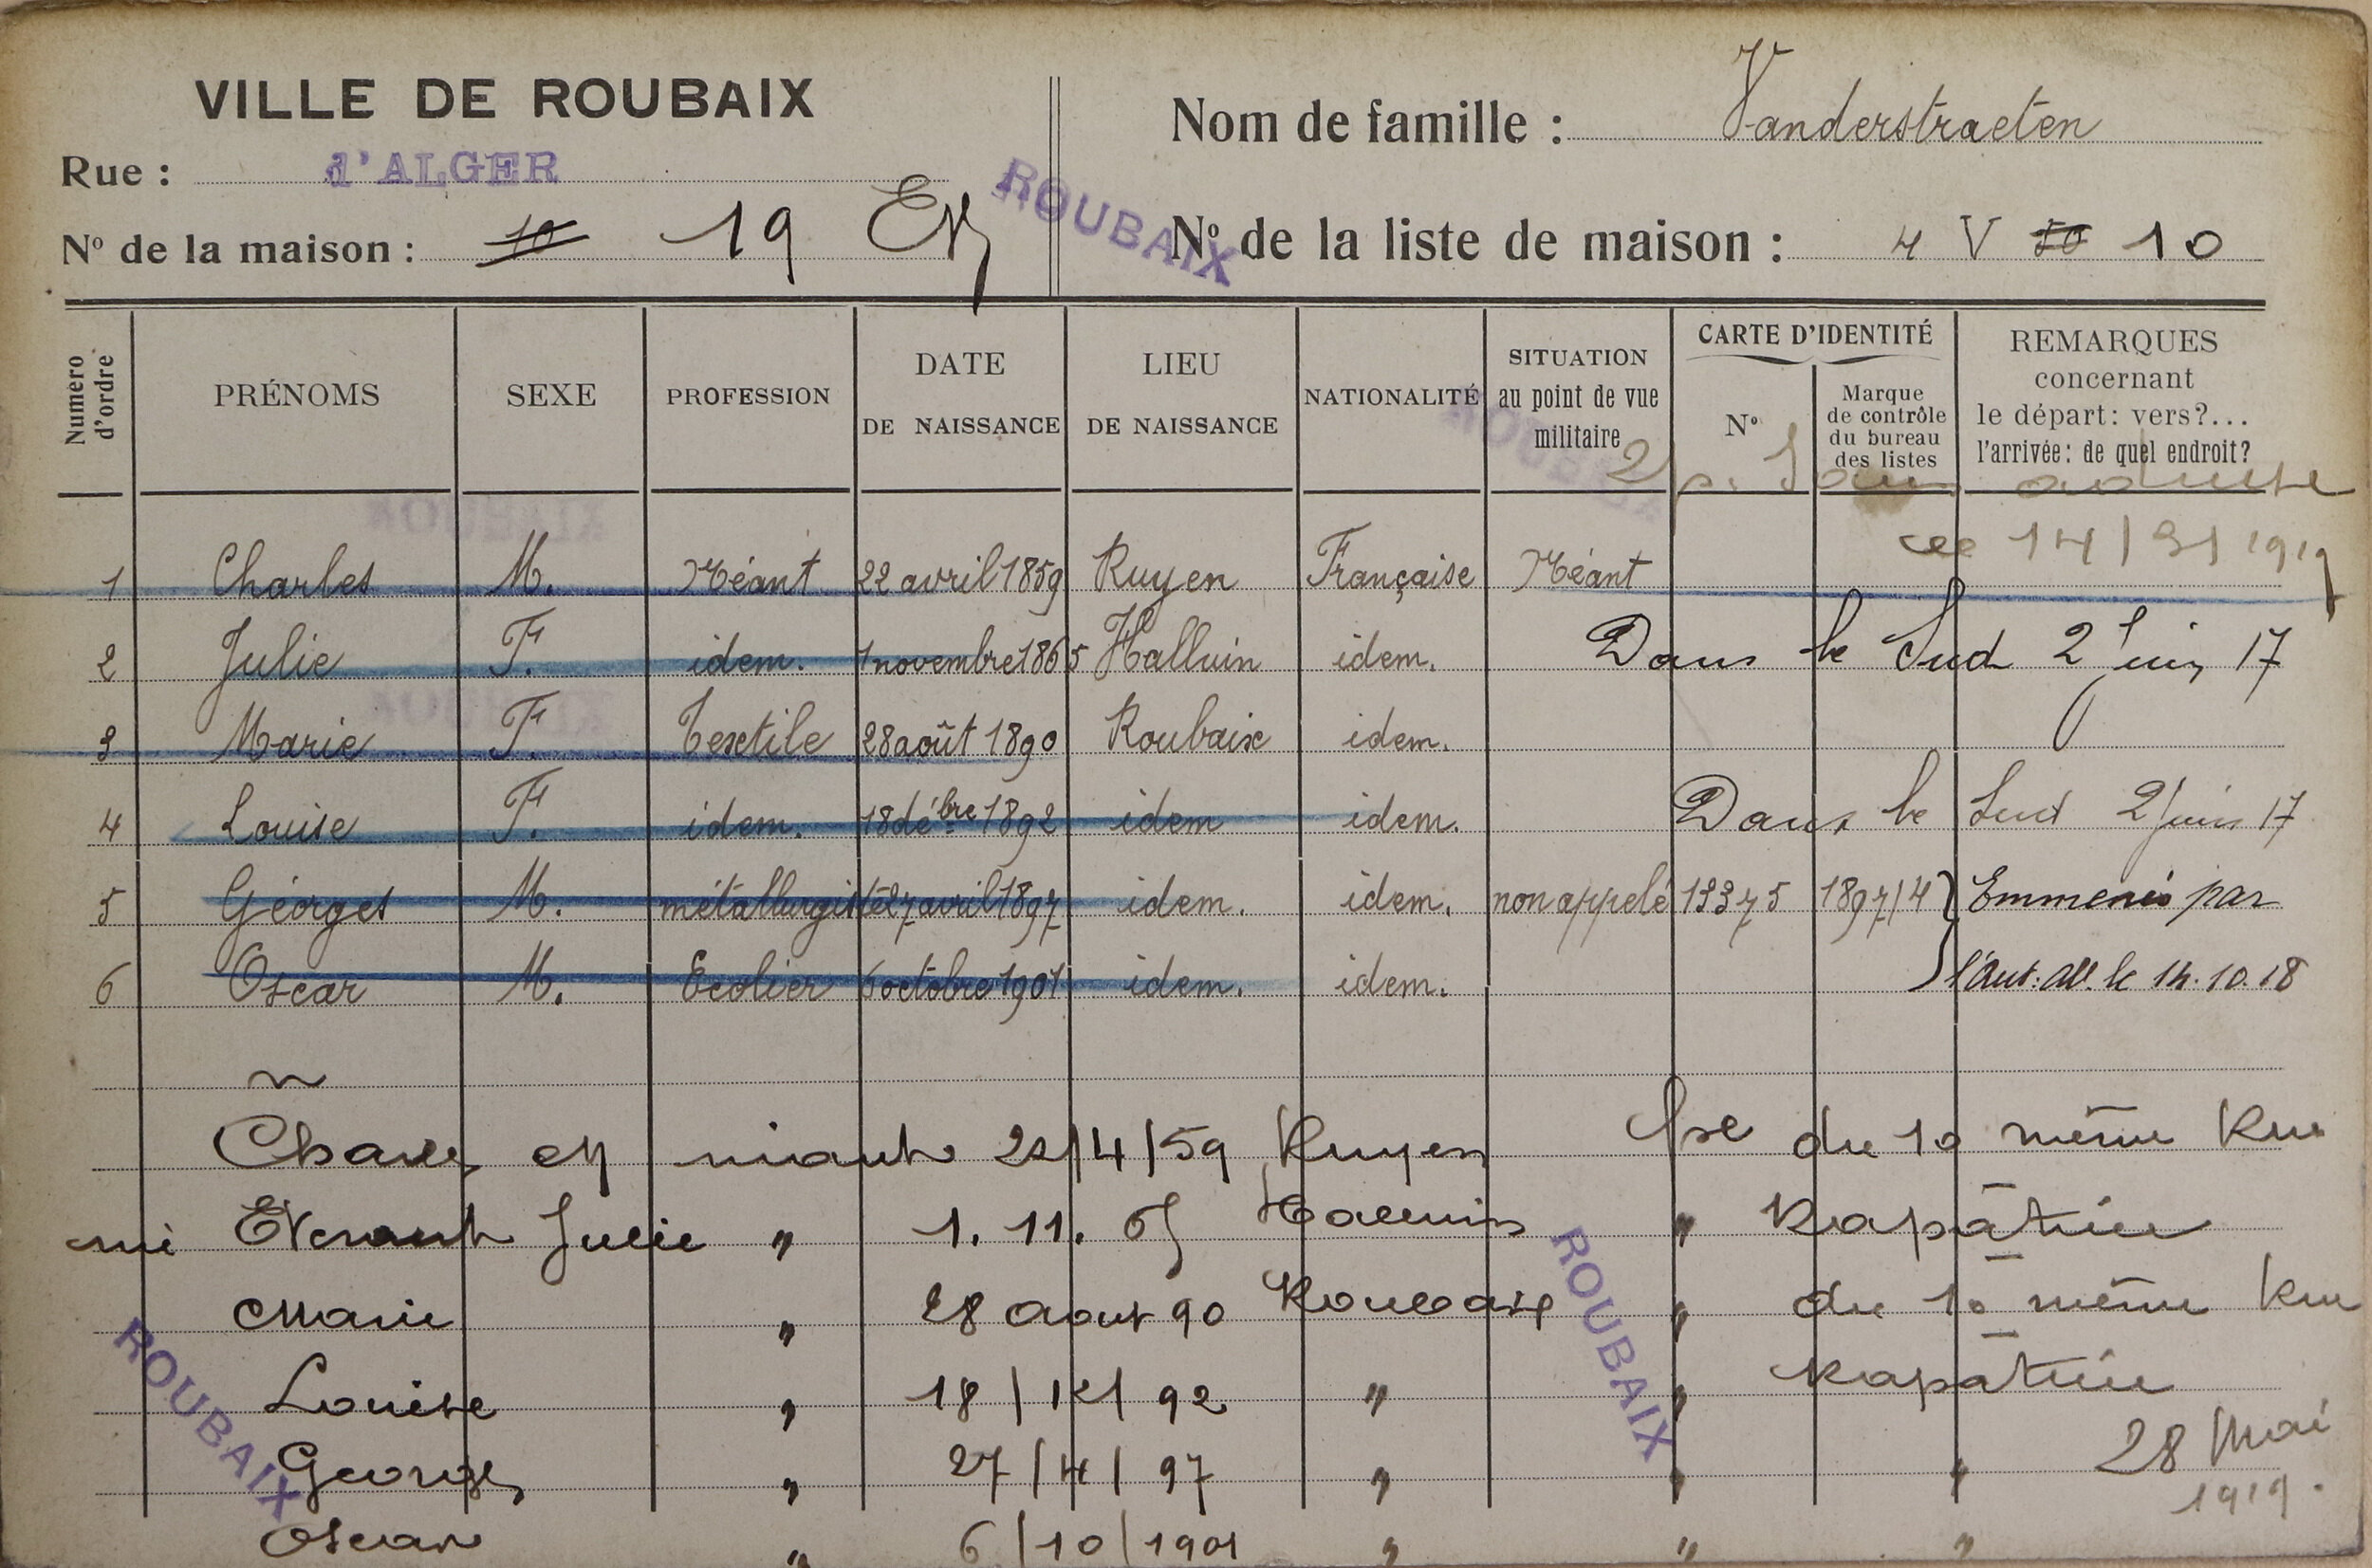 VILLE DE ROUBAIX
Nom de famille : Vanderstraeten
Rue : d'ALGER
ROUBAIX
N° de la maison : 10 19
N° de la liste de maison : 4 V 50 10
Numéro d'ordre
PRÉNOMS
SEXE
PROFESSION
DATE DE NAISSANCE
LIEU DE NAISSANCE
NATIONALITÉ
SITUATION au point de vue militaire
CARTE D'IDENTITÉ
N°
Marque de contrôle du bureau des listes
REMARQUES concernant le départ: vers?... l'arrivée: de quel endroit?
2 p.
14/3/1919
1 Charles M. Néant 22 avril 1859 Ruyen Française Néant
2 Julie F. idem. 1 novembre 1865 Halluin idem. Dans le Sud 2 juin 17
3 Marie F. Textile 28 août 1890 Roubaix idem.
4 Louise F. idem. 18 débre 1892 idem idem. Dans le Sud 2 juin 17
5 Georges M. métallurgiste 27 avril 1897 idem. idem. non appelé 13375 1897/4 Emmenés par
6 Oscar M. Ecolier 6 octobre 1901 idem. idem. l'aut. all. le 14.10.18
Charles M néant 22/4/59 Ruyen fse du 10 même Rue
Julie " 1. 11. 65 Halluin " Rapatriée
Marie " 28 Aout 90 Roubaix " du 10 même Rue
Louise " 18/12/92 " " Rapatriée
Georges " 27/4/97 " " " 28 Mai 1919.
Oscar " 6/10/1901 " " "
ROUBAIX
ROUBAIX